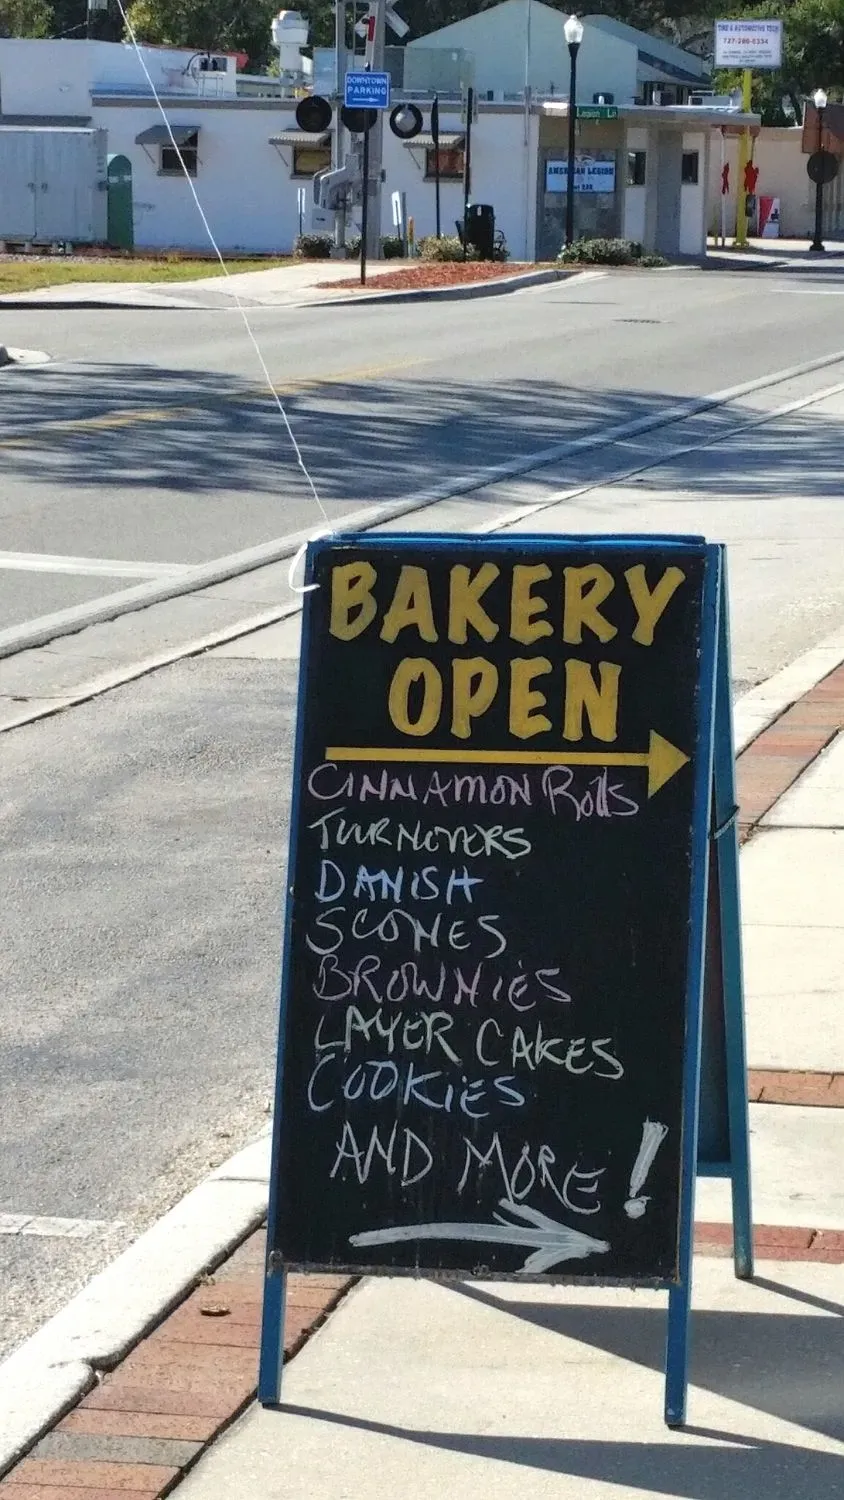 TIRE & AUTOMOTIVE TECH
727-286-6334
DOWNTOWN
PARKING
Legion Ln
AMERICAN LEGION
BAKERY
OPEN
CINNAMON Rolls
TURNOVERS
DANISH
SCONES
BROWNIES
LAYER CAKES
COOKIES
AND MORE!